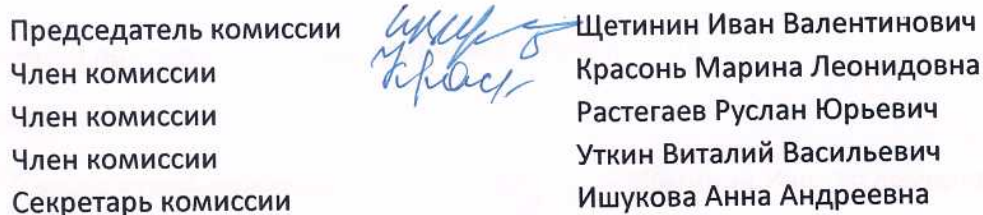 Председатель комиссии Щетинин Иван Валентинович
Член комиссии Красонь Марина Леонидовна
Член комиссии Растегаев Руслан Юрьевич
Член комиссии Уткин Виталий Васильевич
Секретарь комиссии Ишукова Анна Андреевна